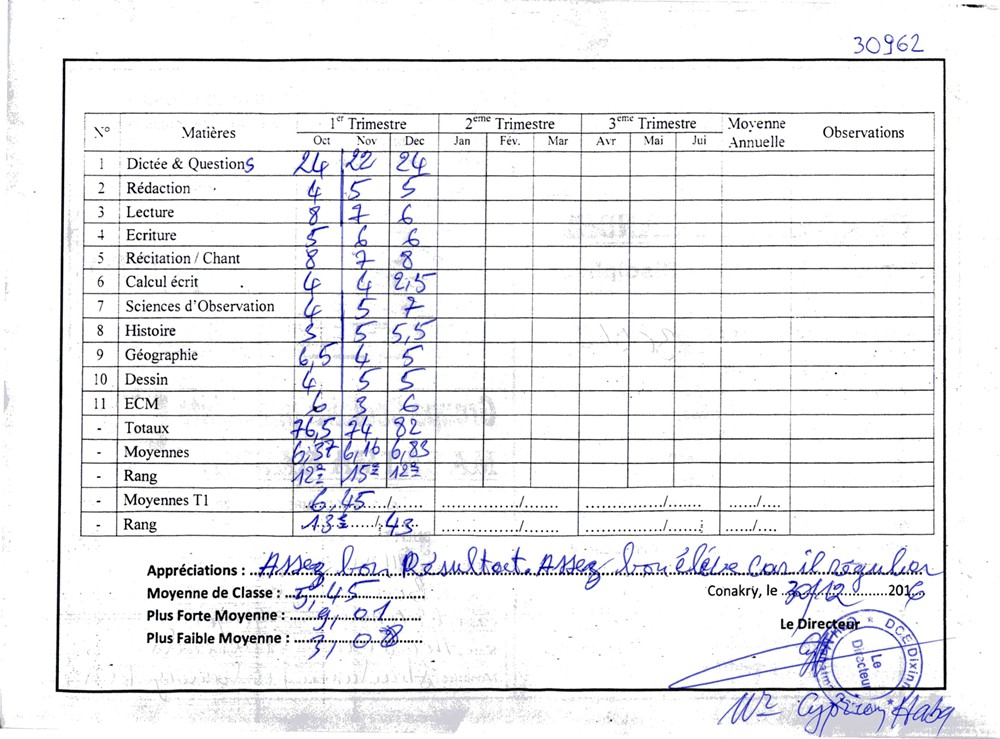 30962
N° Matières 1er Trimestre 2eme Trimestre 3eme Trimestre Moyenne Annuelle Observations
Oct Nov Dec Jan Fév. Mar Avr Mai Jui
1 Dictée & Questions 24 22 24
2 Rédaction 4 5 5
3 Lecture 8 7 6
4 Ecriture 5 6 6
5 Récitation / Chant 8 7 8
6 Calcul écrit 4 4 2,5
7 Sciences d'Observation 4 5 7
8 Histoire 3 5 5,5
9 Géographie 6,5 4 5
10 Dessin 4 5 5
11 ECM 6 3 6
- Totaux 76,5 74 82
- Moyennes 6,37 6,16 6,83
- Rang 12e 15e 12e
- Moyennes T1 6,45 ...../.... ............../...... ............../...... ....../....
- Rang 13e ...../43 ............../...... ............../...... ....../....
Appréciations : Assez bon Résultat. Assez bon élève car il régulier
Moyenne de Classe : 5,45
Conakry, le 30/12 2016
Plus Forte Moyenne : 9,01
Le Directeur
Plus Faible Moyenne : 3,08
DCE/Dixinn
Le Directeur
Mr Cyprien Haba